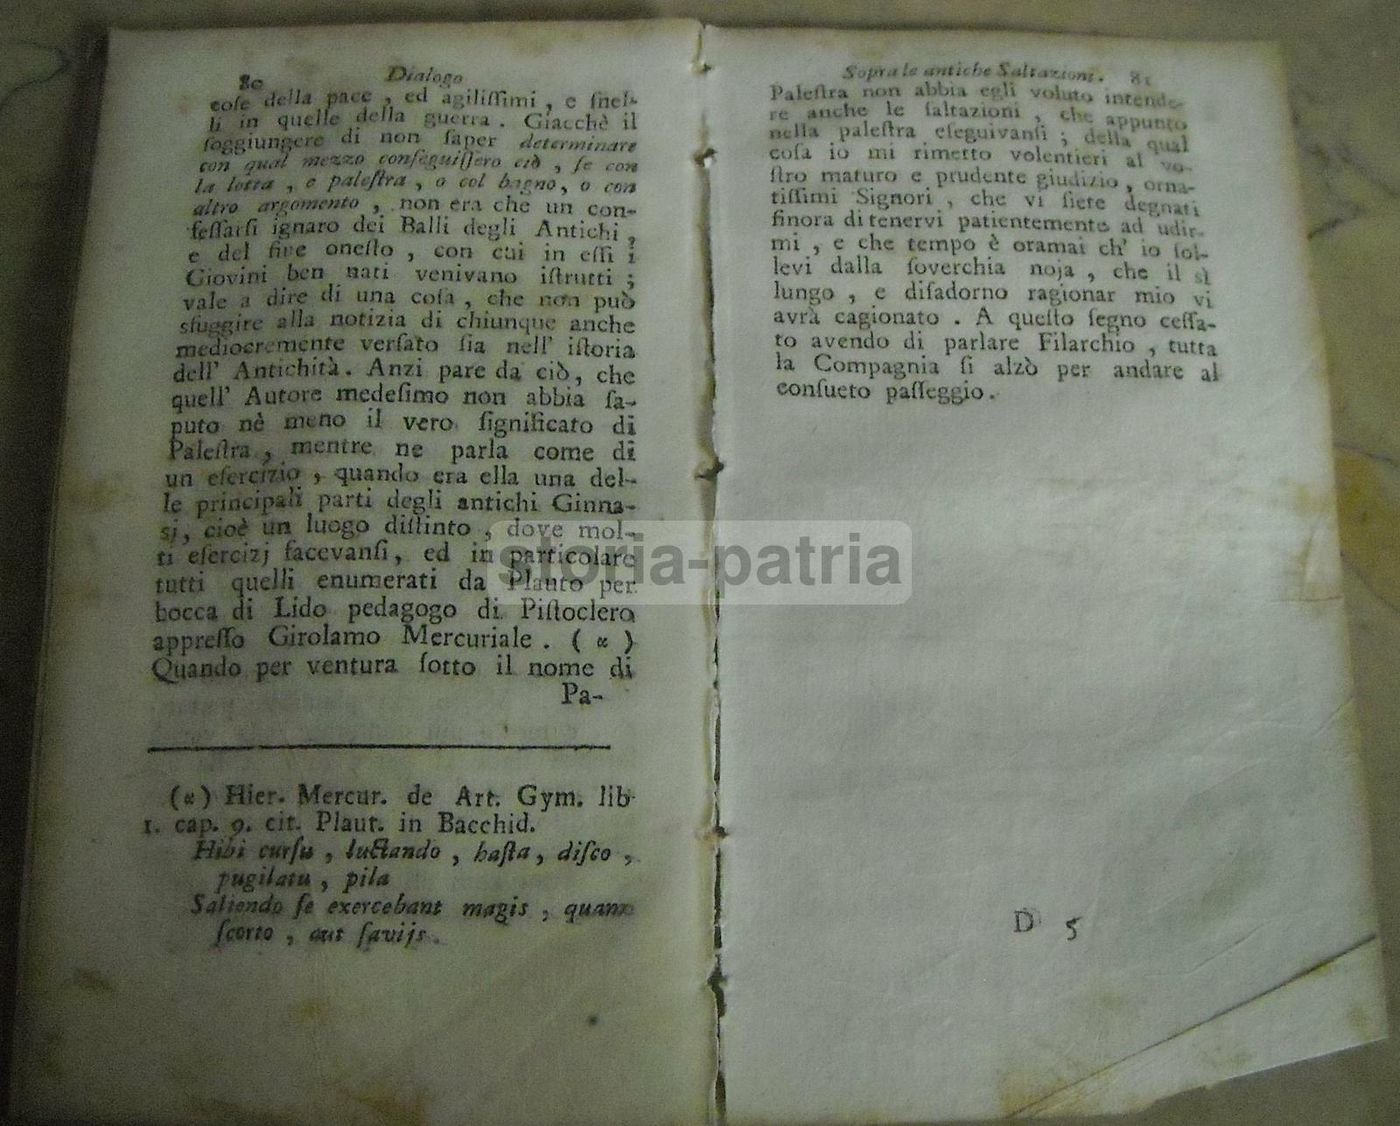 80 Dialogo
coſe della pace, ed agiliſſimi, e ſnel-
li in quelle della guerra. Giacchè il
ſoggiungere di non ſaper determinare
con qual mezzo conſeguiſſero ciò, ſe con
la lotta, e paleſtra, o col bagno, o con
altro argomento, non era che un con-
feſſarſi ignaro dei Balli degli Antichi,
e del fine oneſto, con cui in eſſi i
Giovini ben nati venivano iſtrutti;
vale a dire di una coſa, che non può
sfuggire alla notizia di chiunque anche
mediocremente verſato ſia nell' iſtoria
dell' Antichità. Anzi pare da ciò, che
quell' Autore medeſimo non abbia ſa-
puto nè meno il vero ſignificato di
Paleſtra, mentre ne parla come di
un eſercizio, quando era ella una del-
le principali parti degli antichi Ginna-
sj, cioè un luogo diſtinto, dove mol-
ti eſercizj facevanſi, ed in particolare
tutti quelli enumerati da Plauto per
bocca di Lido pedagogo di Piſtoclero
appreſſo Girolamo Mercuriale. (a)
Quando per ventura ſotto il nome di
Pa-
(a) Hier. Mercur. de Art. Gym. lib.
1. cap. 9. cit. Plaut. in Bacchid.
Hibi curſu, luctando, haſta, diſco,
pugilatu, pila
Saliendo ſe exercebant magis, quam
ſcorto, aut ſavijs.
Sopra le antiche Saltazioni. 81
Paleſtra non abbia egli voluto intende-
re anche le ſaltazioni, che appunto
nella paleſtra eſeguivanſi; della qual
coſa io mi rimetto volentieri al vo-
ſtro maturo e prudente giudizio, orna-
tiſſimi Signori, che vi ſiete degnati
finora di tenervi patientemente ad udir-
mi, e che tempo è oramai ch' io ſol-
levi dalla ſoverchia noja, che il sì
lungo, e diſadorno ragionar mio vi
avrà cagionato. A queſto ſegno ceſſa-
to avendo di parlare Filarchio, tutta
la Compagnia ſi alzò per andare al
conſueto paſſeggio.
D 5
storia-patria